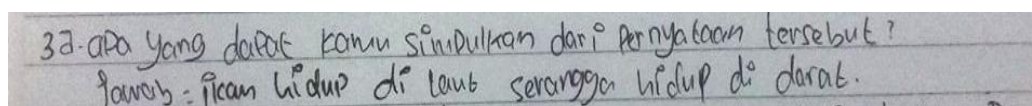 3d. apa yang dapat kamu simpulkan dari pernyataan tersebut?
Jawab = ikan hidup di laut serangga hidup di darat.